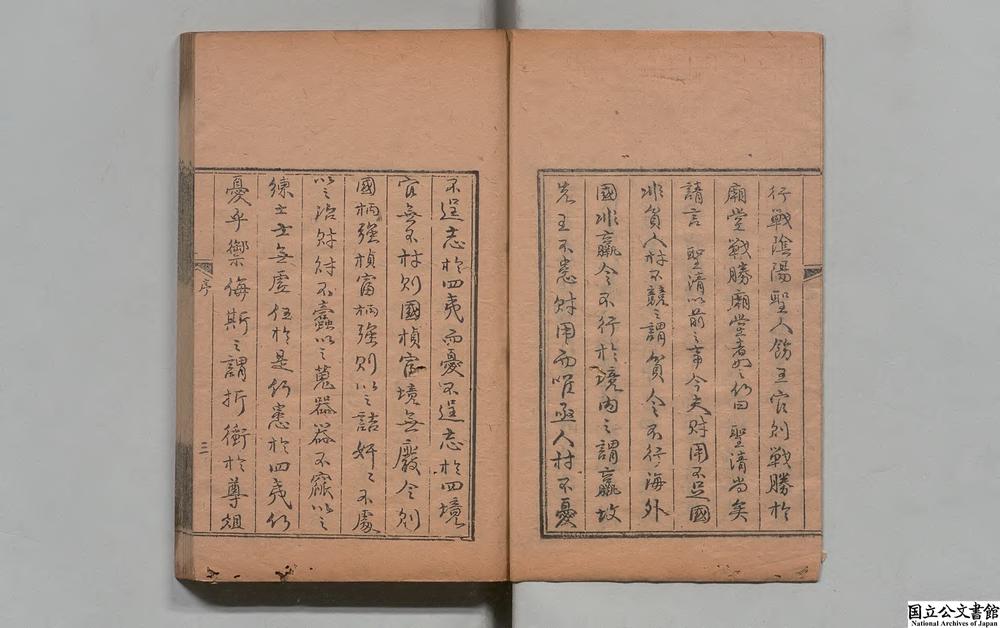 行戰陰陽聖人飭五官則戰勝於
廟堂戰勝廟堂者如之何曰 聖清尚矣
請言 聖清以前之事今夫財用不足國
非貧人材不競之謂貧令不行海外
國非羸令不行於境內之謂羸故
先王不患財用而唯亟人材不憂
不逞志於四夷而憂不逞志於四境
官無不材則國楨富境無廢令則
國柄強楨富柄強則以之詰奸奸不處
以之治財財不蠹以之蒐器器不窳以之
練士士無虛伍於是何患於四夷何
憂乎禦侮斯之謂折衝於尊俎
序
三
国立公文書館
National Archives of Japan